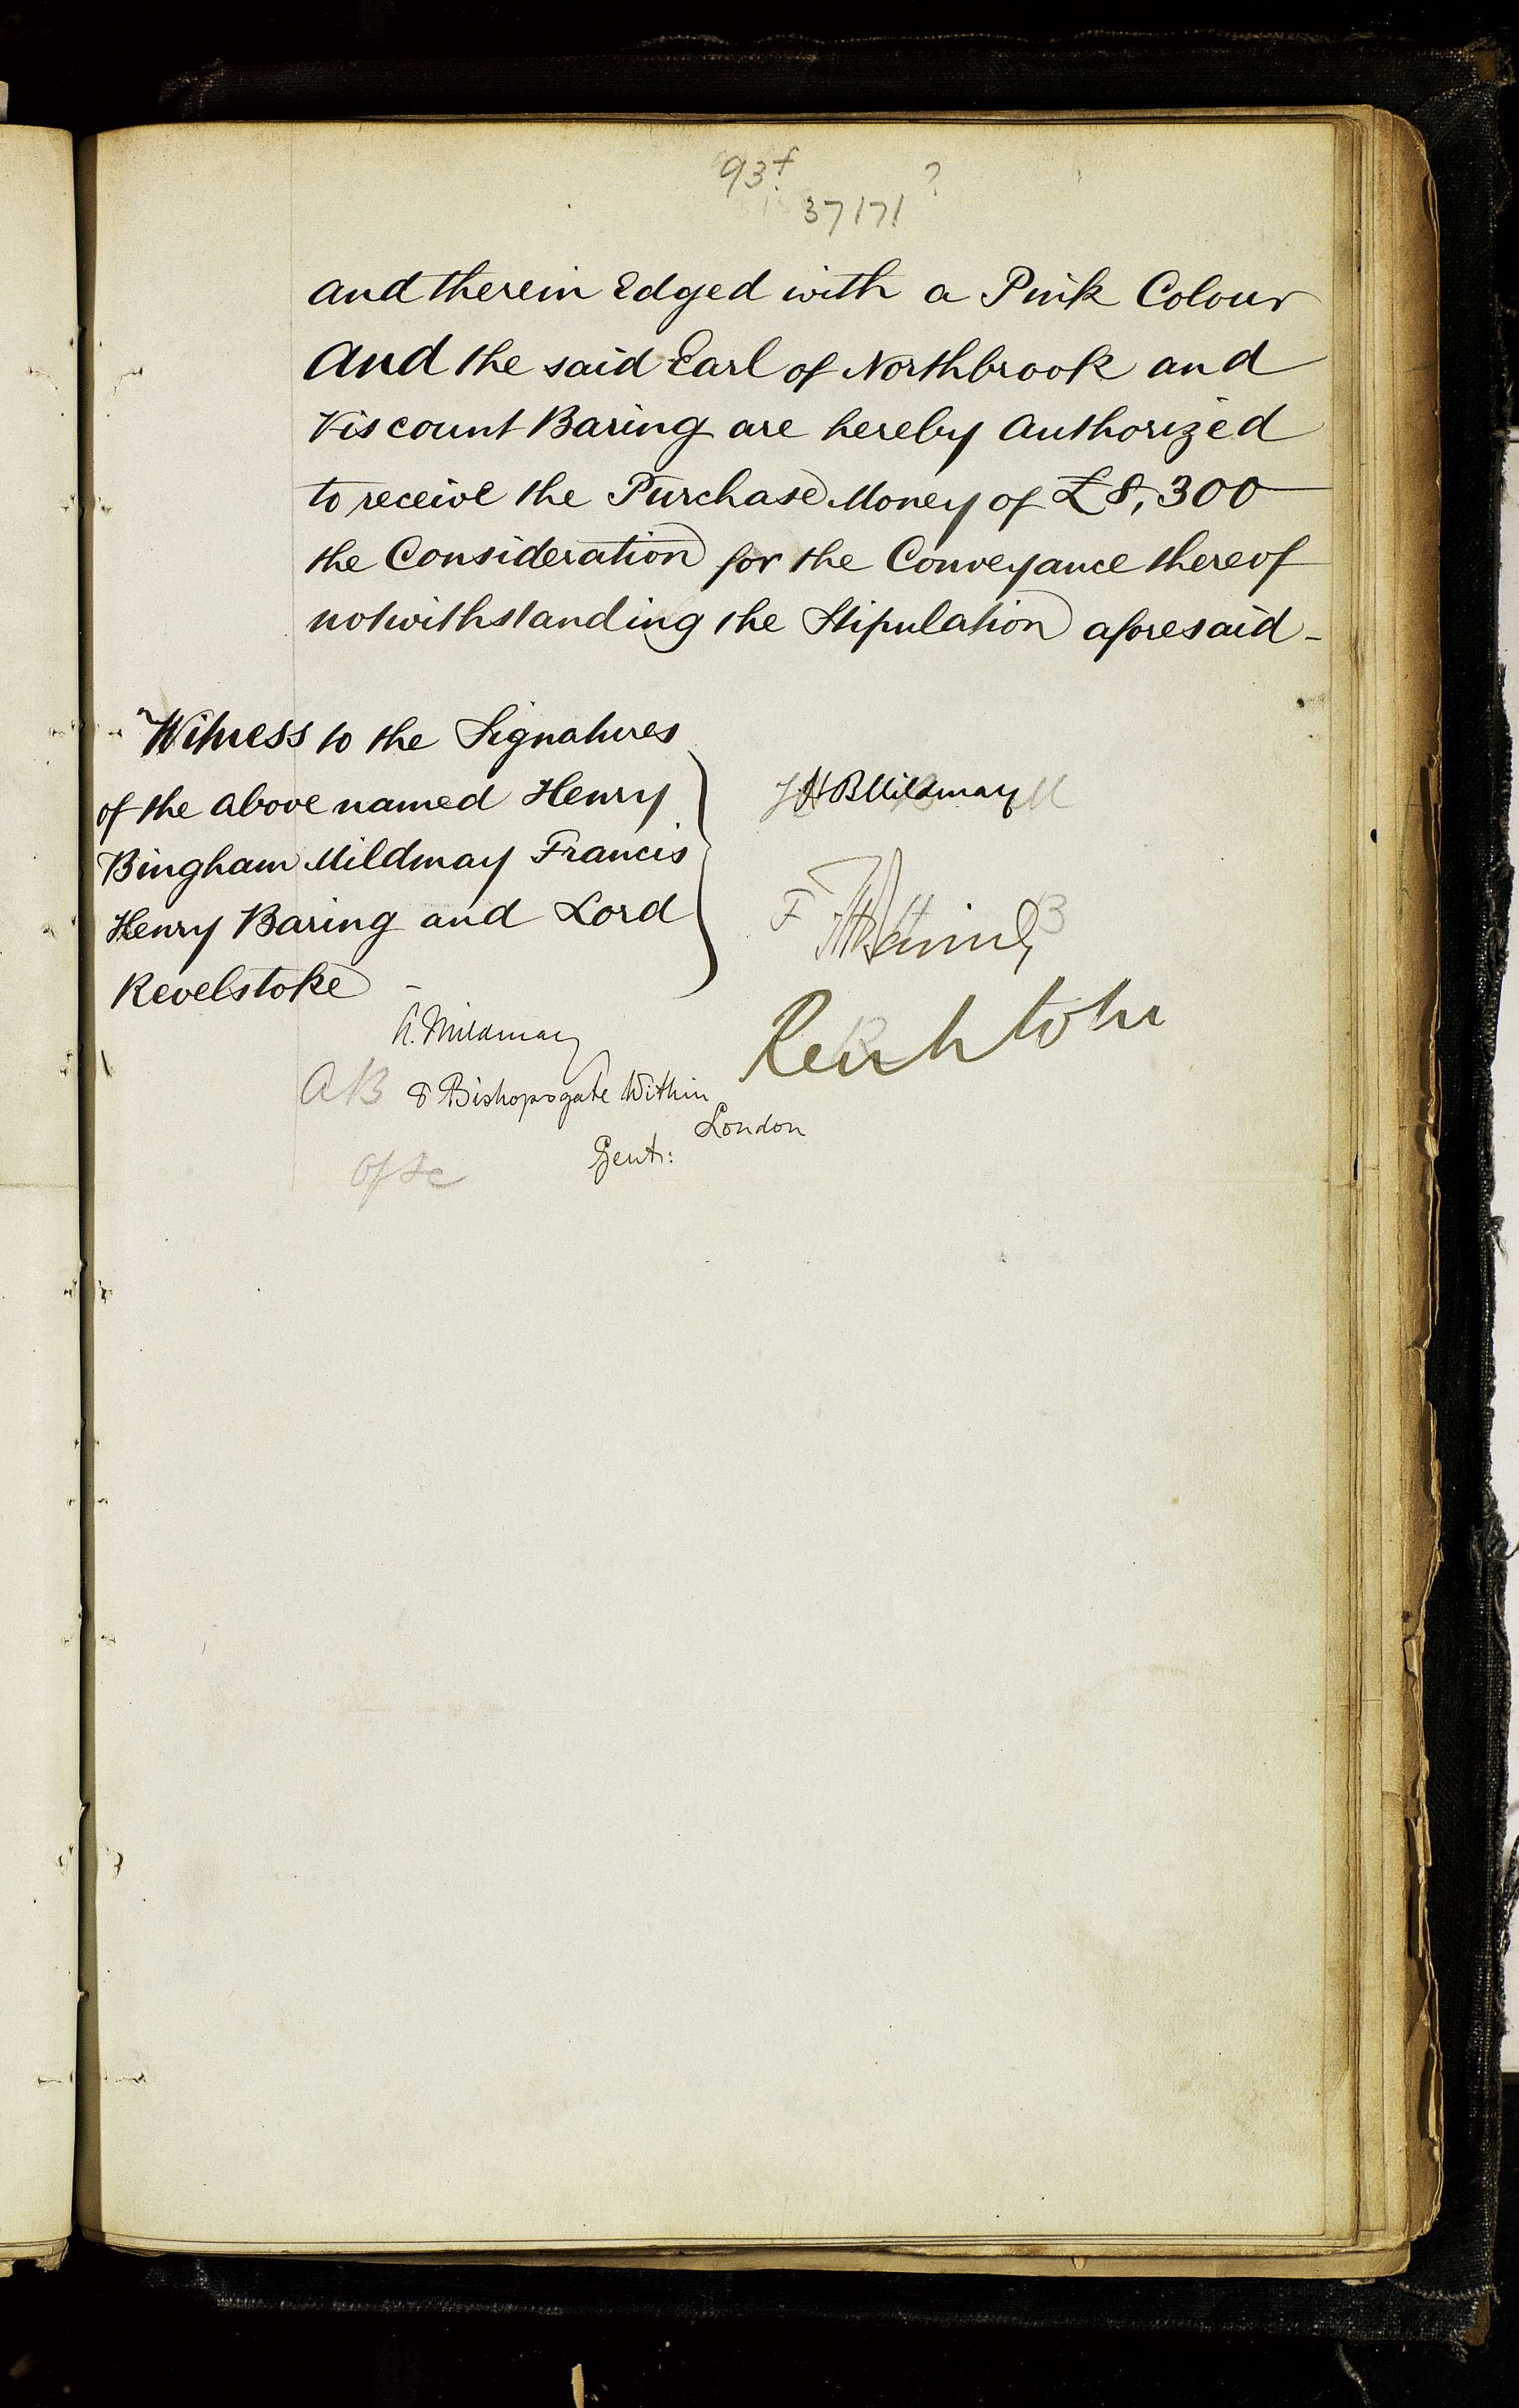 93f
37171 ?
and therein Edged with a Pink Colour
And the said Earl of Northbrook and
Viscount Baring are hereby Authorized
to receive the Purchase Money of £8,300
the Consideration for the Conveyance thereof
notwithstanding the Stipulation aforesaid -
Witness to the Signatures
of the above named Henry
Bingham Mildmay Francis
Henry Baring and Lord
Revelstoke -
H B Mildmay
F H Baring
Revelstoke
A. Mildmay
AB 8 Bishopsgate Within
London
Gent:
of &c